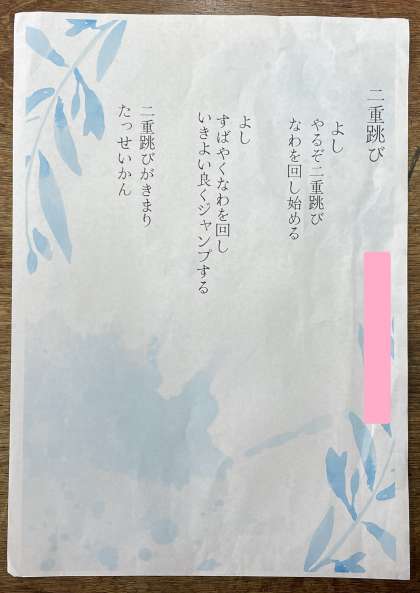 二重跳び
よし
やるぞ二重跳び
なわを回し始める
よし
すばやくなわを回し
いきよい良くジャンプする
二重跳びがきまり
たっせいかん